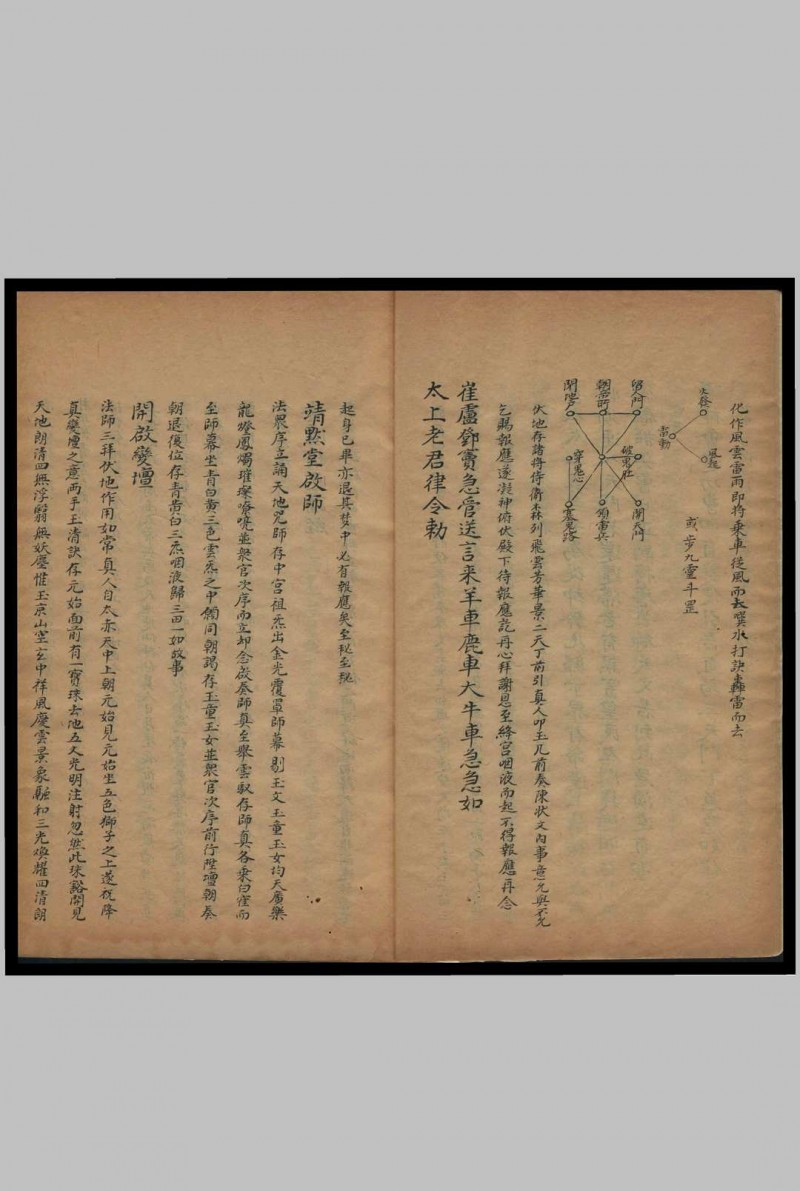 化作風雲雷雨即將乘車從風而去噀水打訣轟雷而去
火發
雷動
風起
或步九靈斗罡
留人門
朝治所
閉陰戶
破鬼肚
穿鬼心
開天門
領雷兵
塞鬼路
伏地存諸將侍衛森列飛雲芳華景二天丁前引真人叩玉几前奏陳狀文內事意允與不允
乞賜報應遂凝神俯伏殿下待報應訖丹心拜謝恩至絳宮咽液而起不得報應再念
崔盧鄧竇急管送言来羊車鹿車大牛車急急如
太上老君律令勅
起身已畢亦退其梦中必有報應矣至秘至秘
靖默堂啟師
法眾序立誦天地咒師存中宮祖炁出金光覆罩師幕剔玉文玉童玉女均天廣樂
龍燈鳳燭璀璨嘹喨並眾官次序而立却念啟奏師真至舉雲馭存師真各乘白雲而
至師幕坐青白黃三色雲炁之中師同朝謁存玉童玉女並眾官次序前行陞壇朝奏
朝退復位存青黃白三炁咽液歸三田一如故事
開啟變壇
法師三拜伏地作用如常真人自太赤天中上朝元始見元始坐五色獅子之上遂祝降
真變壇之意兩手玉清訣存元始面前有一寶珠去地五丈光明注射忽然此珠豁開見
天地朗清四無浮翳無妖塵惟玉京山空玄中祥風慶雲景象融和三光煥耀四清朗